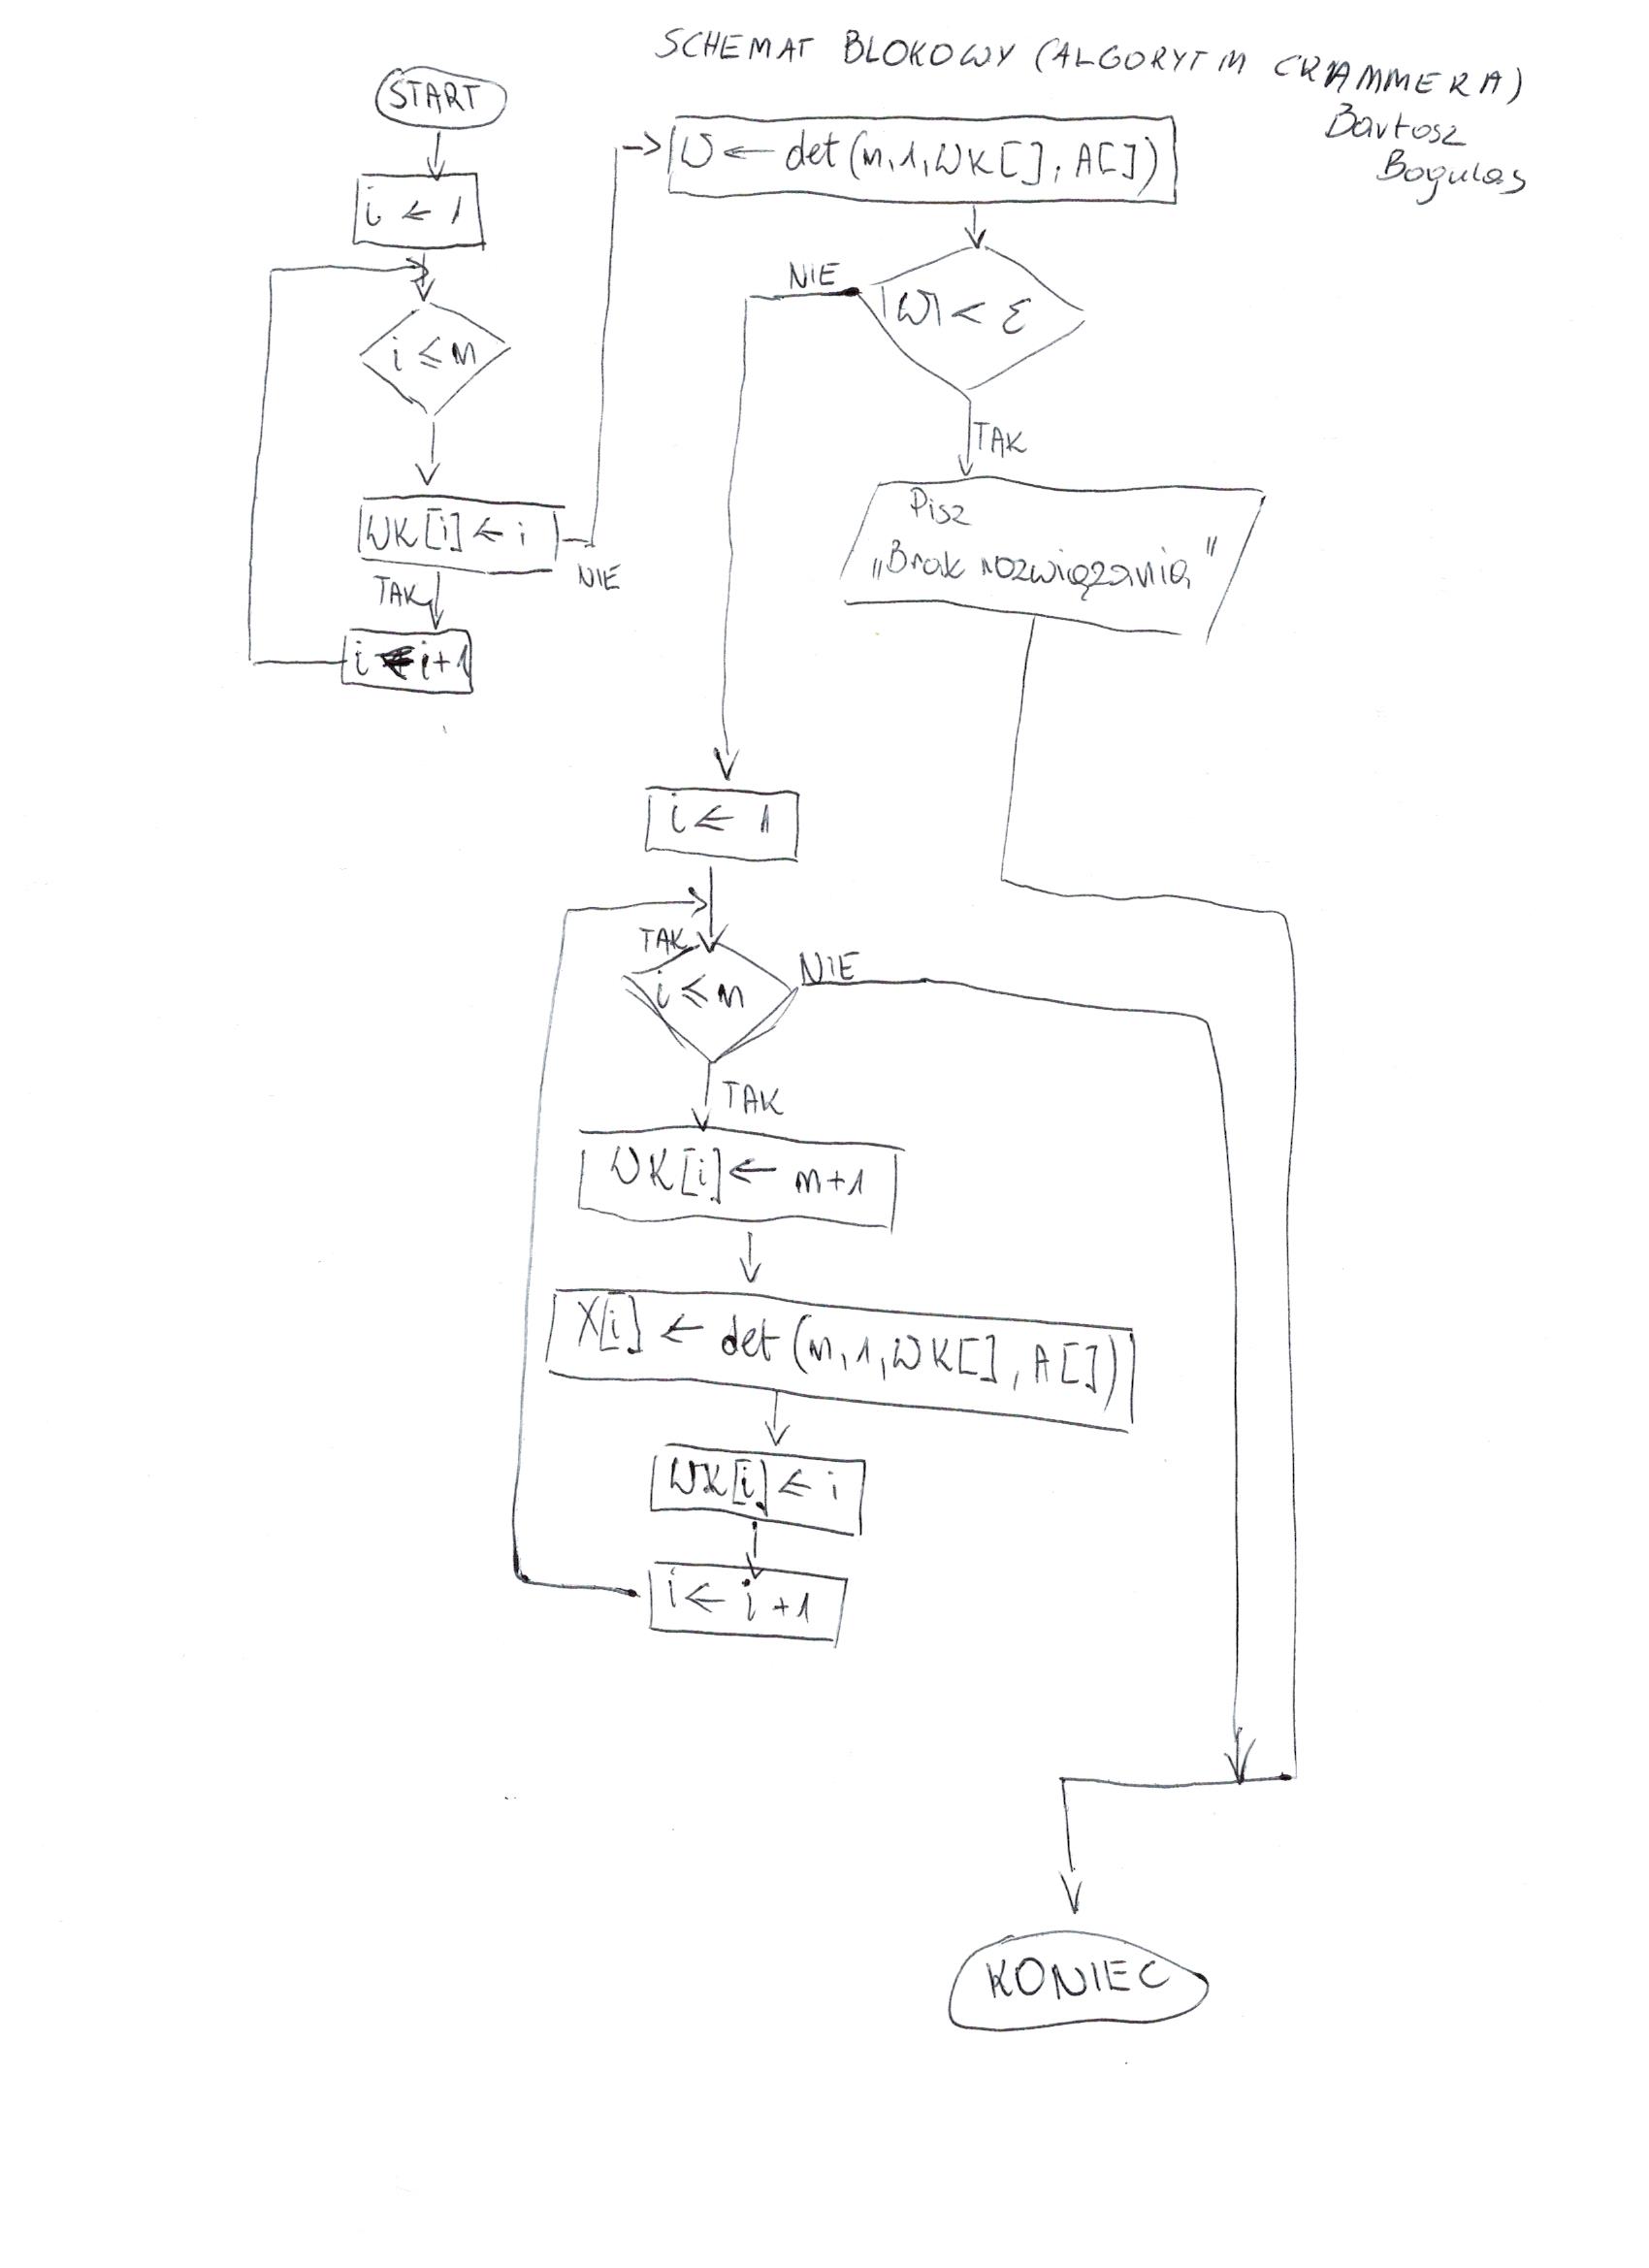 SCHEMAT BLOKOWY (ALGORYTM CRAMMERA)
Bartosz
Bogulas
START
i ← 1
i ≤ n
WK[i] ← i
NIE
TAK
i ← i+1
W ← det(n,1,WK[],A[])
|W| < ε
NIE
TAK
Pisz
„Brak rozwiązania"
i ← 1
TAK
i ≤ n
NIE
TAK
WK[i] ← n+1
X[i] ← det(n,1,WK[],A[])
WK[i] ← i
i ← i+1
KONIEC